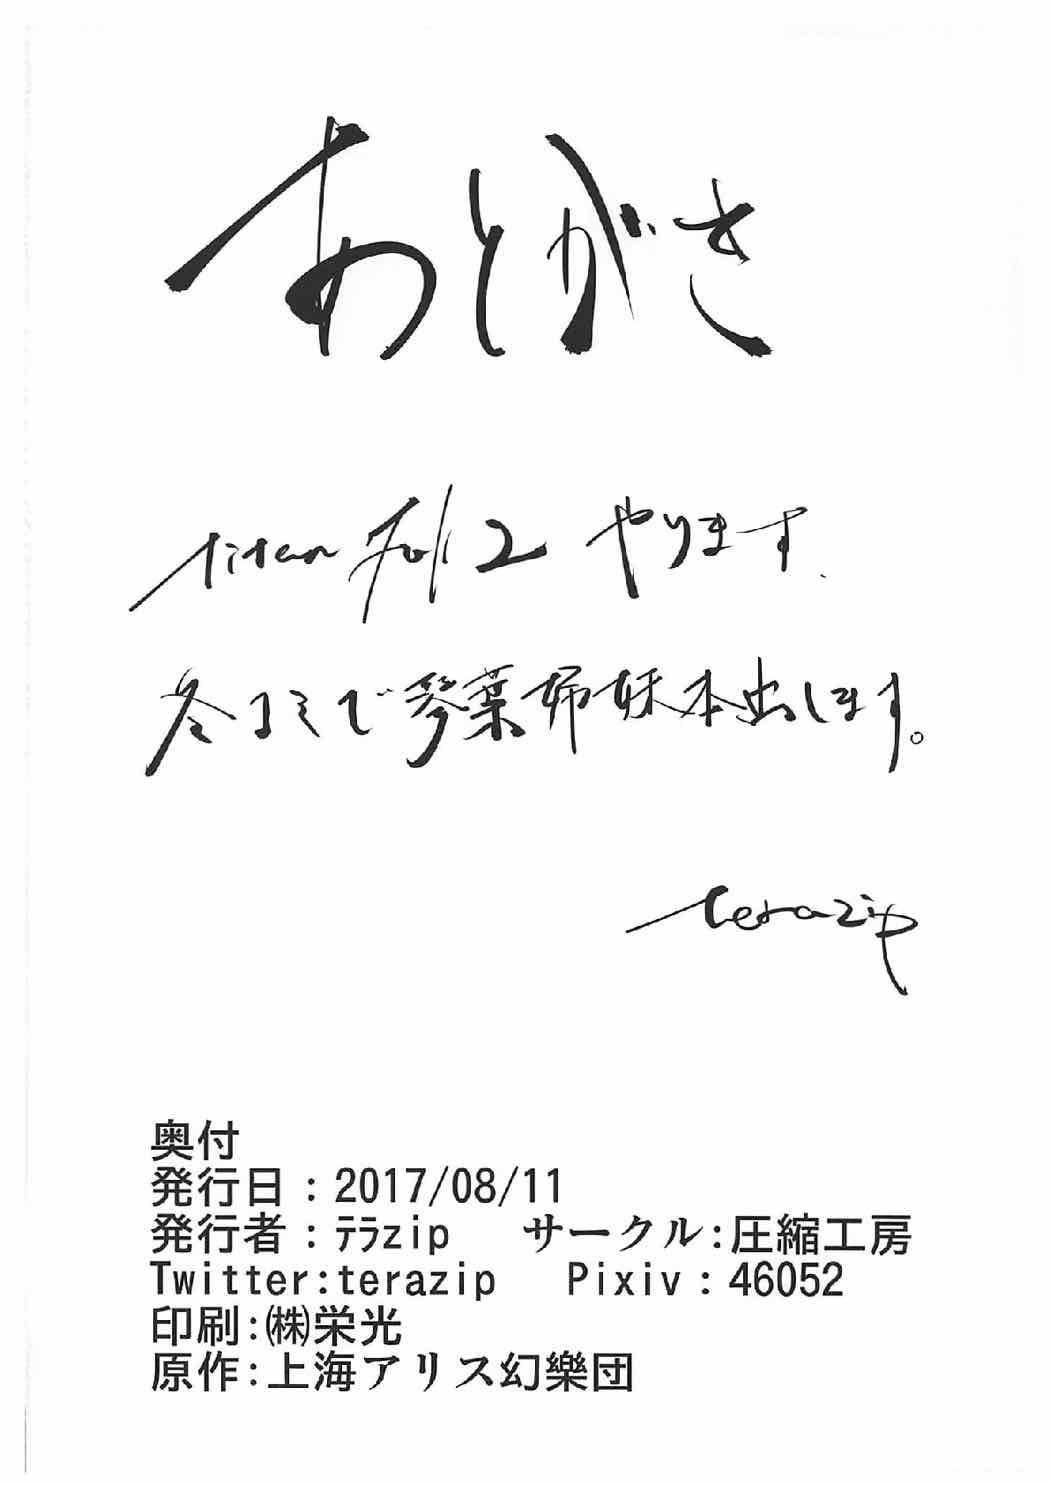 あとがき
titan fall 2 やります.
冬コミで琴葉姉妹本出します。
terazip
奥付
発行日：2017/08/11
発行者：ﾃﾗzip サークル:圧縮工房
Twitter:terazip Pixiv：46052
印刷:㈱栄光
原作:上海アリス幻樂団